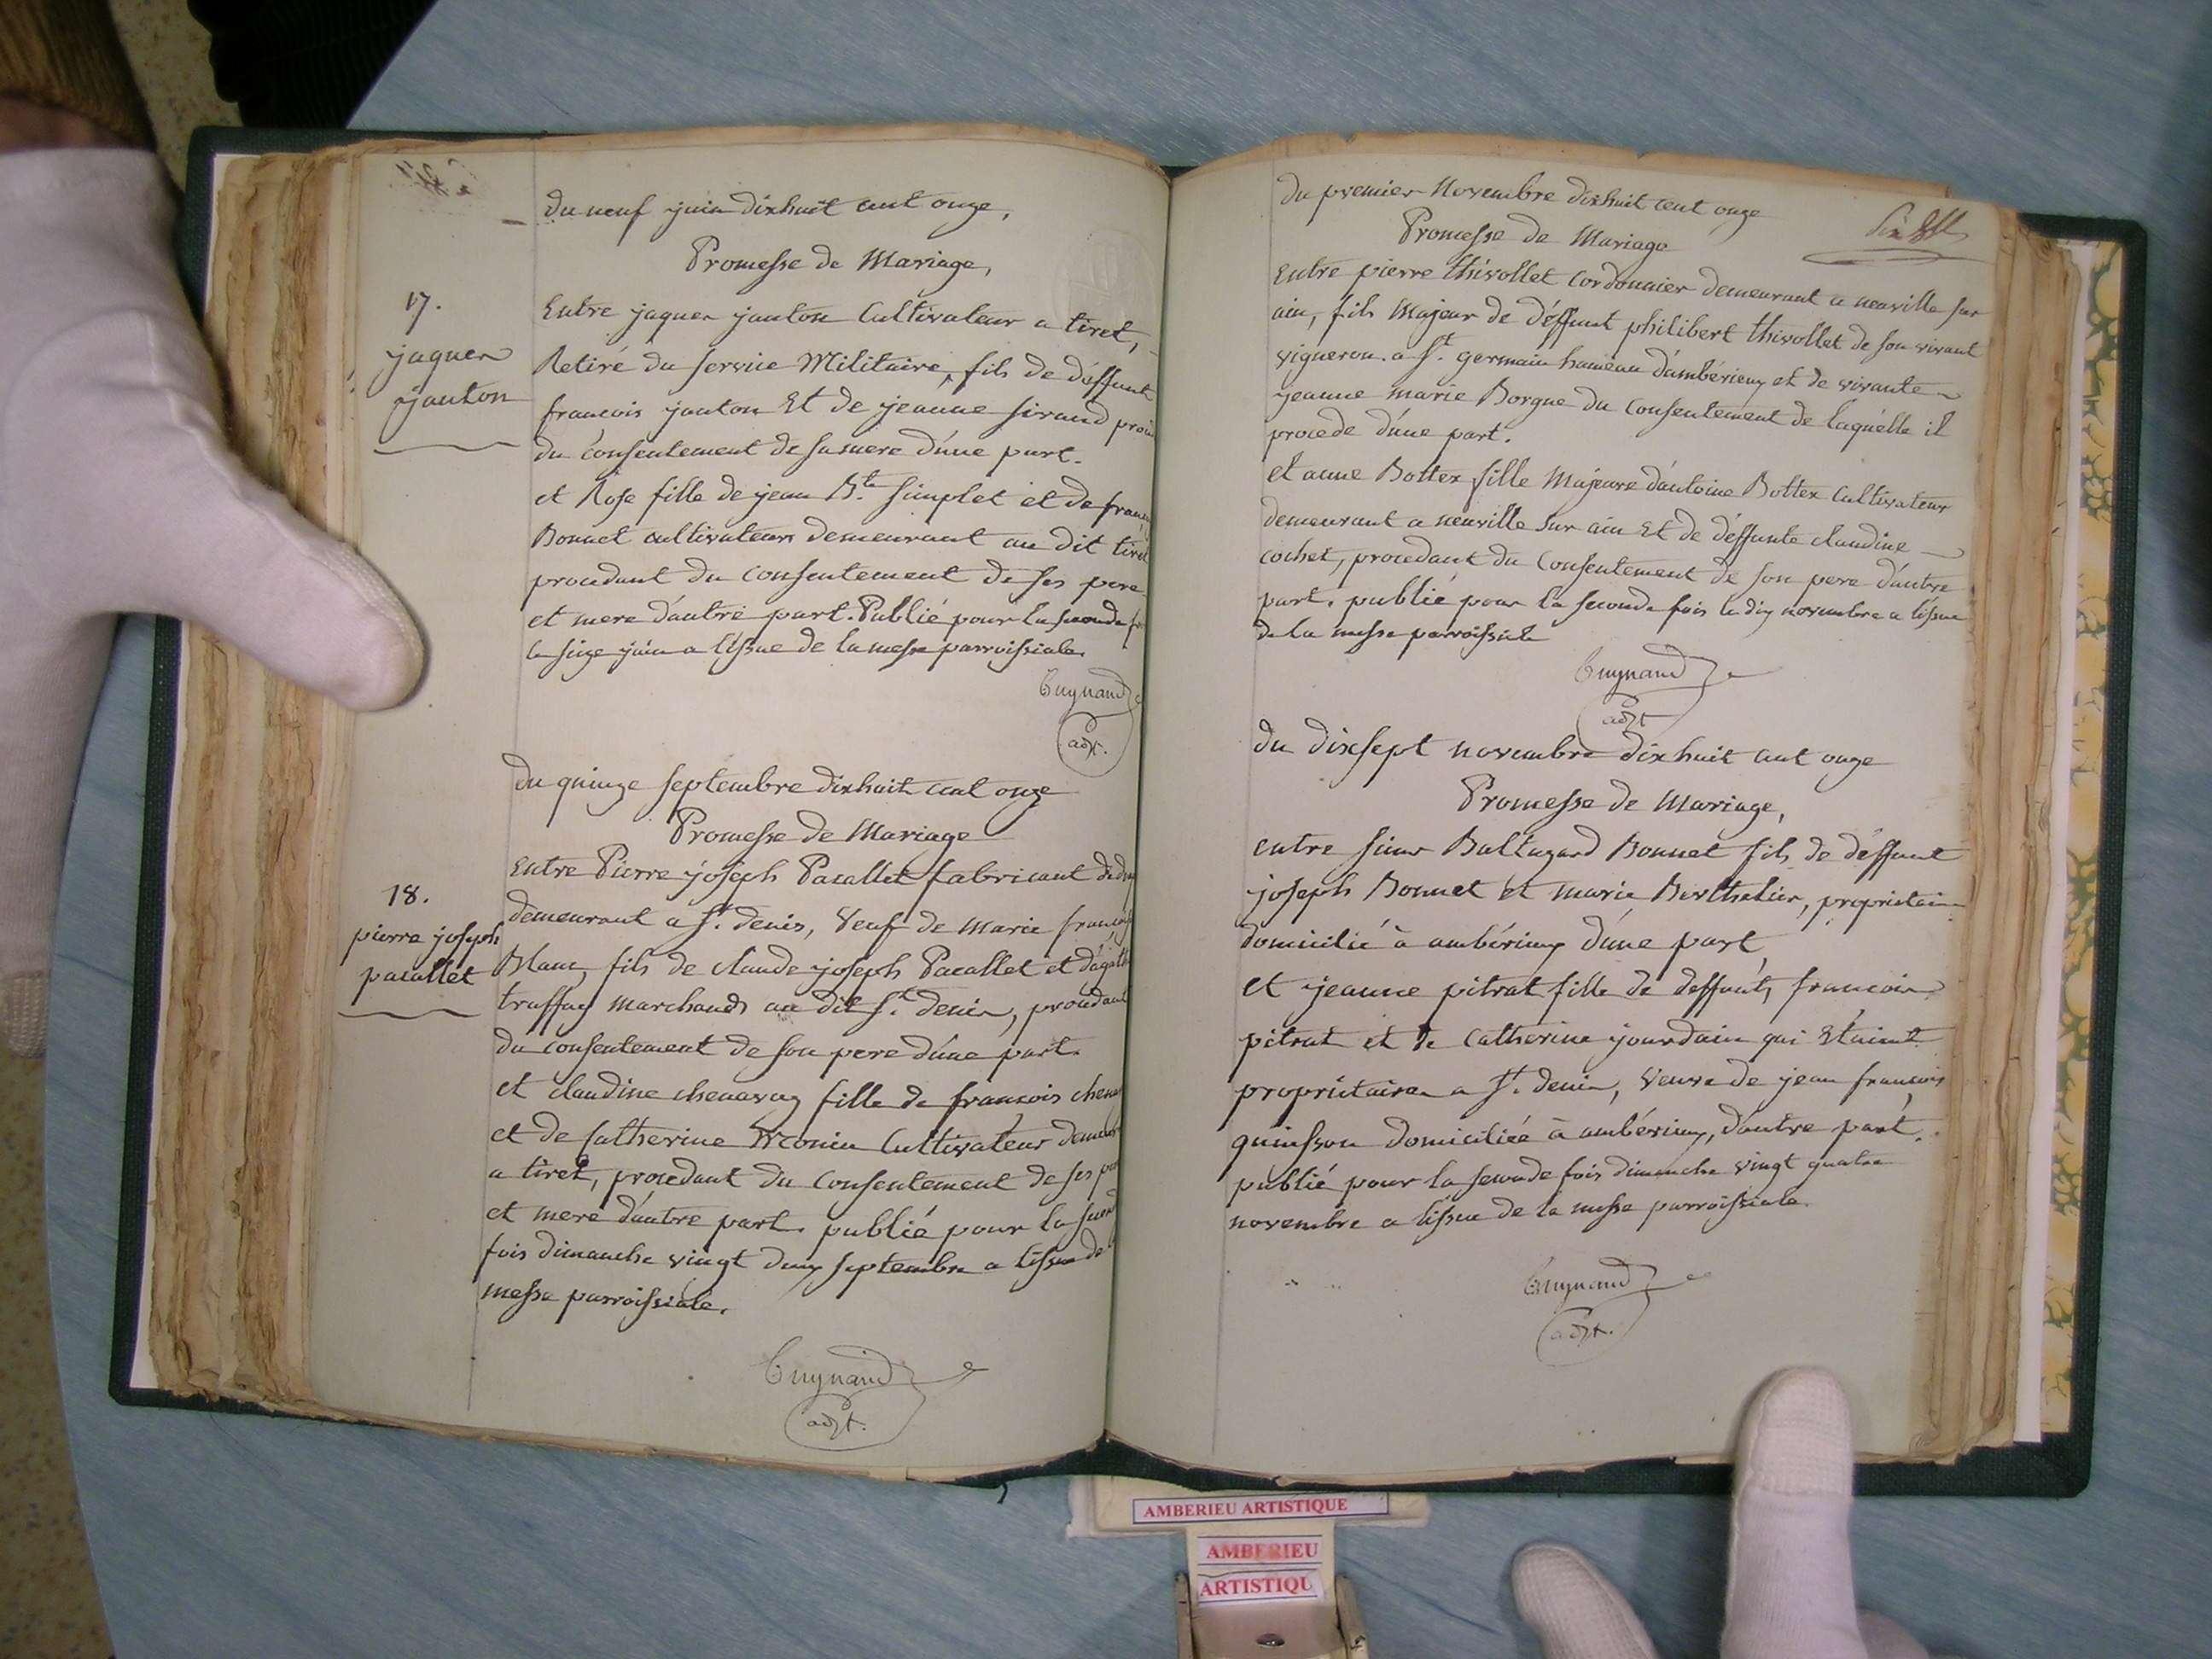 du neuf juin dixhuit cent onze,
Promesse de Mariage,
17.
jaques
janton
Entre jaques janton Cultivateur a tiret,
Retiré du service Militaire, fils de déffunt
francois janton Et de jeanne sirand
du consentement de sa mere d'une part.
et Rose fille de jean B.te simplet et de
Bonnet cultivateurs demeurant au dit tiret
procedant du consentement de ses pere
et mere d'autre part. Publié pour la seconde
le seize juin a l'issue de la messe parroissiale.
Cuynaud
adjt.
du quinze septembre dixhuit cent onze
Promesse de Mariage
18.
pierre joseph
pacallet
Entre Pierre joseph Pacallet fabricant de
demeurant a St. denis, Veuf de Marie
Blanc, fils de claude joseph Pacallet et
truffay marchands au dit St. denis, procedant
du consentement de son pere d'une part.
et claudine chenavay fille de francois
et de Catherine Monin Cultivateur
a tiret, procedant du consentement de ses
et mere d'autre part. publié pour la
fois dimanche vingt deux septembre a l'issue de
messe parroissiale.
Cuynaud
adjt.
du premier Novembre dixhuit cent onze
Promesse de Mariage
Entre pierre thivollet cordonnier demeurant a neuville sur
ain, fils Majeur de déffunt philibert thivollet de son vivant
vigneron a St. germain hameau d'ambérieux et de vivante
jeanne marie Borgne du consentement de laquelle il
procede d'une part.
et anne Bottex fille Majeure d'antoine Bottex Cultivateur
demeurant a neuville sur ain Et de déffunte claudine
cochet, procedant du consentement de son pere d'autre
part. publié pour la seconde fois le dix novembre a l'issue
de la messe parroissiale
Cuynaud
adjt
du dixsept novembre dixhuit cent onze
Promesse de Mariage,
entre sieur Baltazard Bonnet fils de déffunt
joseph Bonnet et marie Berthelier, proprietaire
domicilié à ambérieux d'une part,
et jeanne pitrat fille de deffunts francois
pitrat et de Catherine jourdain qui Etaient
propriétaires a St. denis, veuve de jean francois
quinsson domiciliée à ambérieux, d'autre part.
publié pour la seconde fois dimanche vingt quatre
novembre a l'issue de la messe parroissiale.
Cuynaud
adjt.
AMBERIEU ARTISTIQUE
AMBERIEU
ARTISTIQU